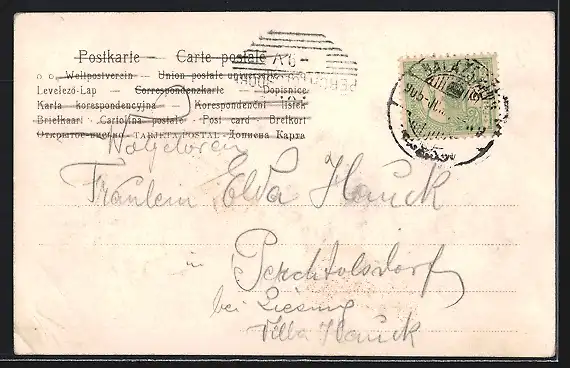 Postkarte — Carte postale
Weltpostverein — Union postale universelle
Levelező-Lap — Correspondenzkarte Dopisnice
Karta korespondencyjna — Korespondenční lístek
Briefkaart - Cartolina postale - Post card - Brefkort
Открытое письмо - TARJETA POSTAL - Дописна Карта
Fräulein Elda Hauck
in Perchtolsdorf
bei Liesing
Villa Hauck